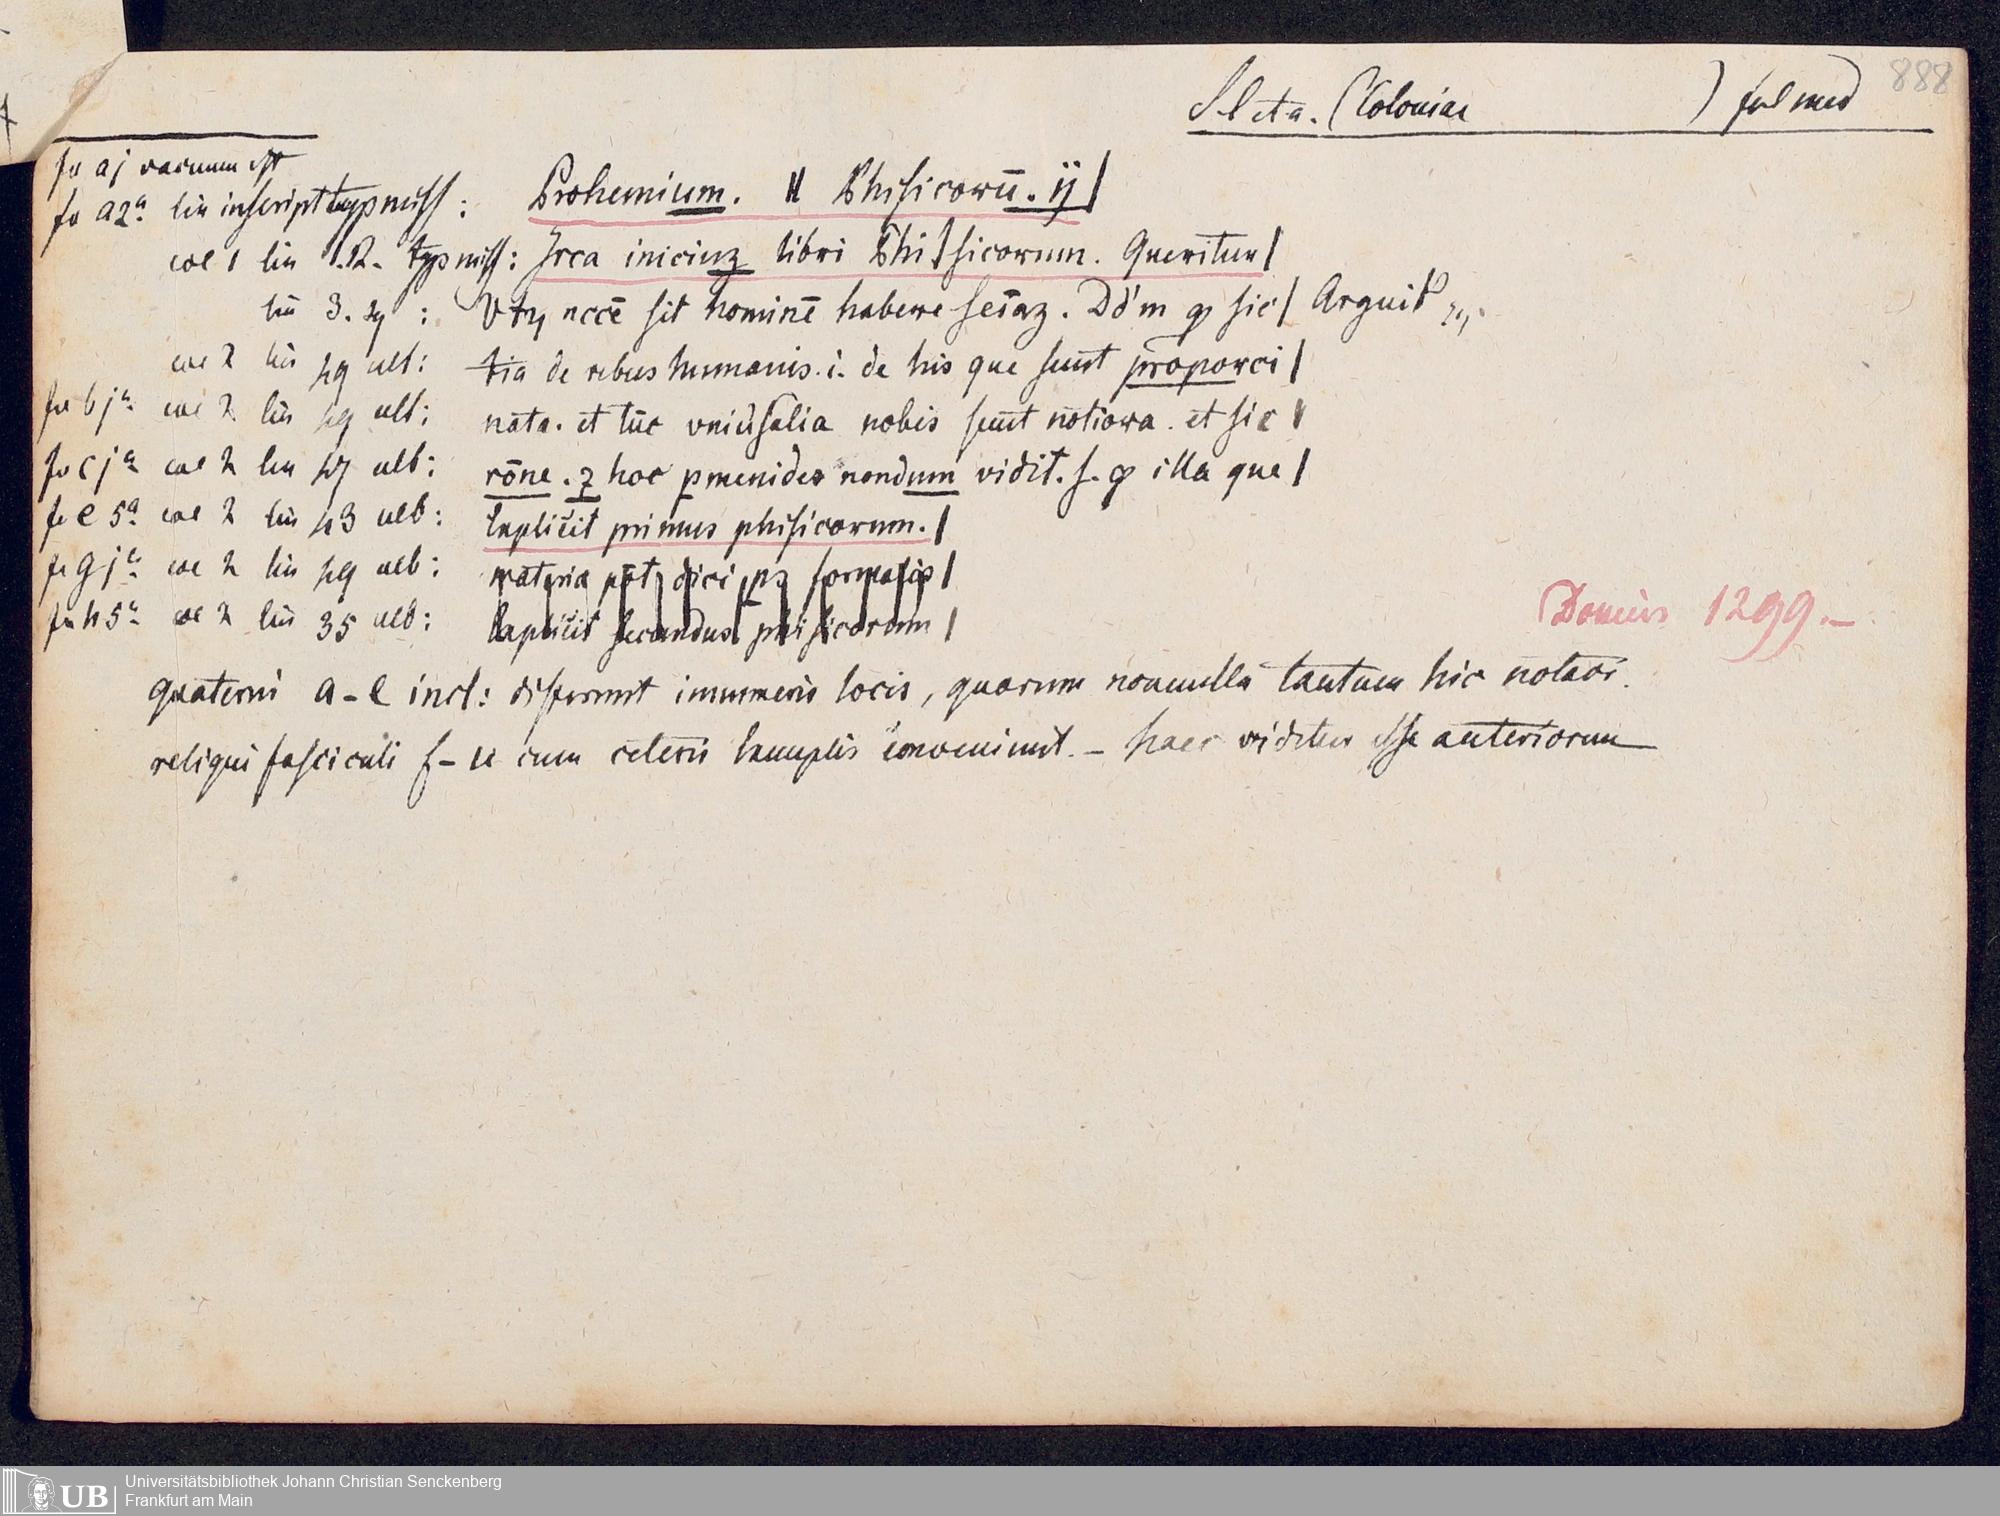 888
S. l. et a. (Coloniae ) fol med
fo aj vacuum est
fo a2a lin inscript typ miss: Prohemium. Phisicorū. ij|
col 1 lin 1.2. typ miss: Irca iniciuꝫ libri Phi|sicorum. Queritur|
lin 3. : Vtꝝ nccē sit hominē habere . Dd'm ꝙ sic| Arguit
col 2 lin ult: tia de rebus humanis. i. de his que sunt proporci|
fo bja col 2 lin ult: nata. et tūc vniūsalia nobis sunt notiora. et sic|
fo cja col 2 lin ult: rōne. ꝫ hoc pmenides nondum vidit. s. ꝙ illa que|
fo e5a col 2 lin 43 ult: Explicit primus phisicorum.|
fo gja col 2 lin ult: materia pōt dici formalis|
fo h5a col 2 lin 35 ult: Explicit secundus phisicorum|
Domus 1299.—
quaterni a-e incl: differunt innumeris locis, quorum nonnulla tantum hic notavi.
reliqui fasciculi f- cum ceteris exemplis conveniunt. — haec videtur esse anteriorum
Universitätsbibliothek Johann Christian Senckenberg
UB Frankfurt am Main